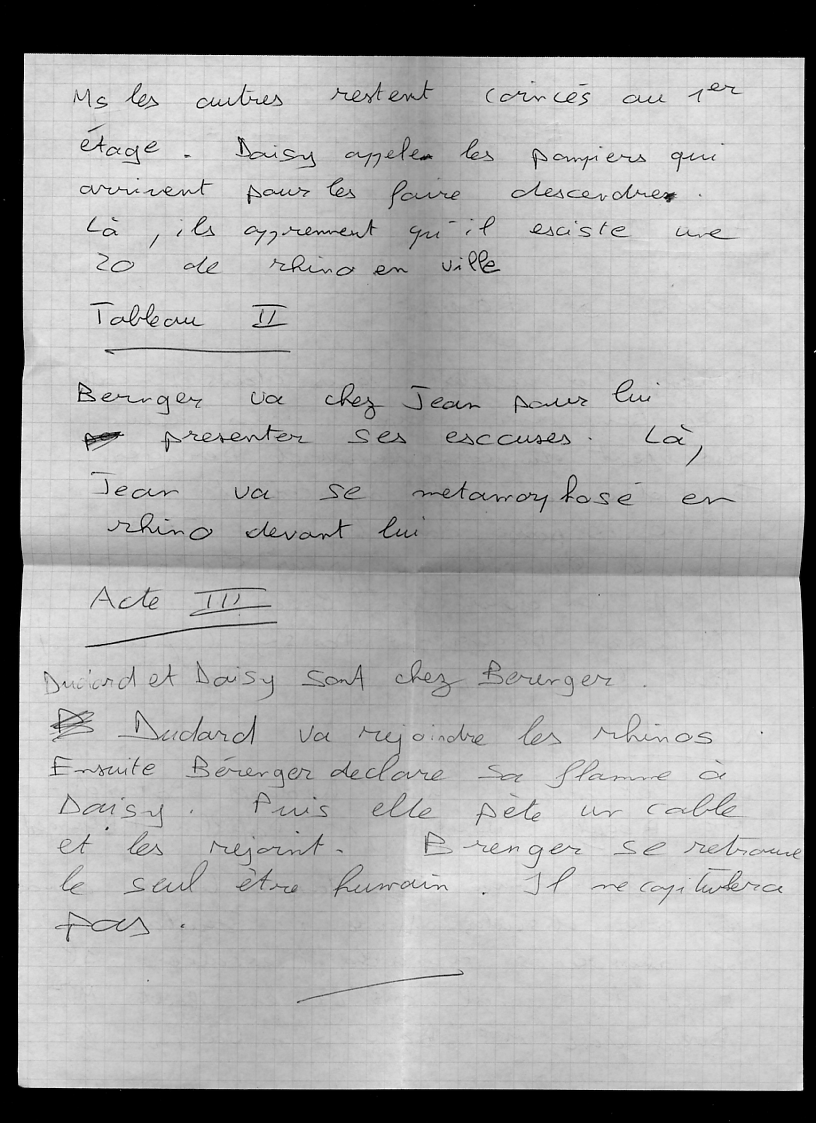 Ms les autres restent coincés au 1er
étage. Daisy appele les pompiers qui
arrivent pour les faire descendre.
Là, ils apprennent qu'il esciste une
20 de rhino en ville
Tableau II
Bernger va chez Jean pour lui
presenter ses esccuses. Là,
Jean va se metamorphosé en
rhino devant lui
Acte III
Dudard et Daisy sont chez Berenger.
Dudard va rejoindre les rhinos.
Ensuite Bérenger declare sa flamme à
Daisy. Puis elle pète un cable
et les rejoint. Brenger se retrouve
le seul être humain. Il ne capitulera
pas.